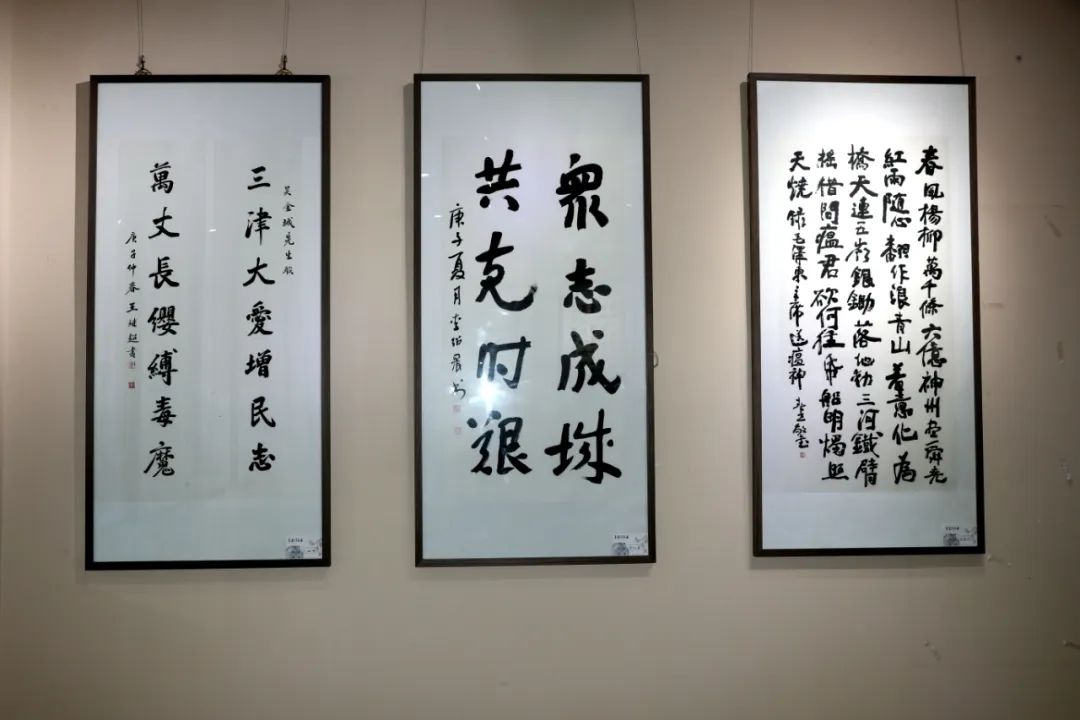 三津大愛增民志
吴金城先生
萬丈長纓縛毒魔
庚子仲春王继超書
衆志成城
共克时艱
庚子夏月
春风楊柳萬千條六億神州尽舜尧
紅雨随心翻作浪青山著意化為
橋天連五岭銀鋤落地動三河鐵臂
摇借問瘟君欲何往纸船明燭照
天燒 錄毛澤東主席送瘟神